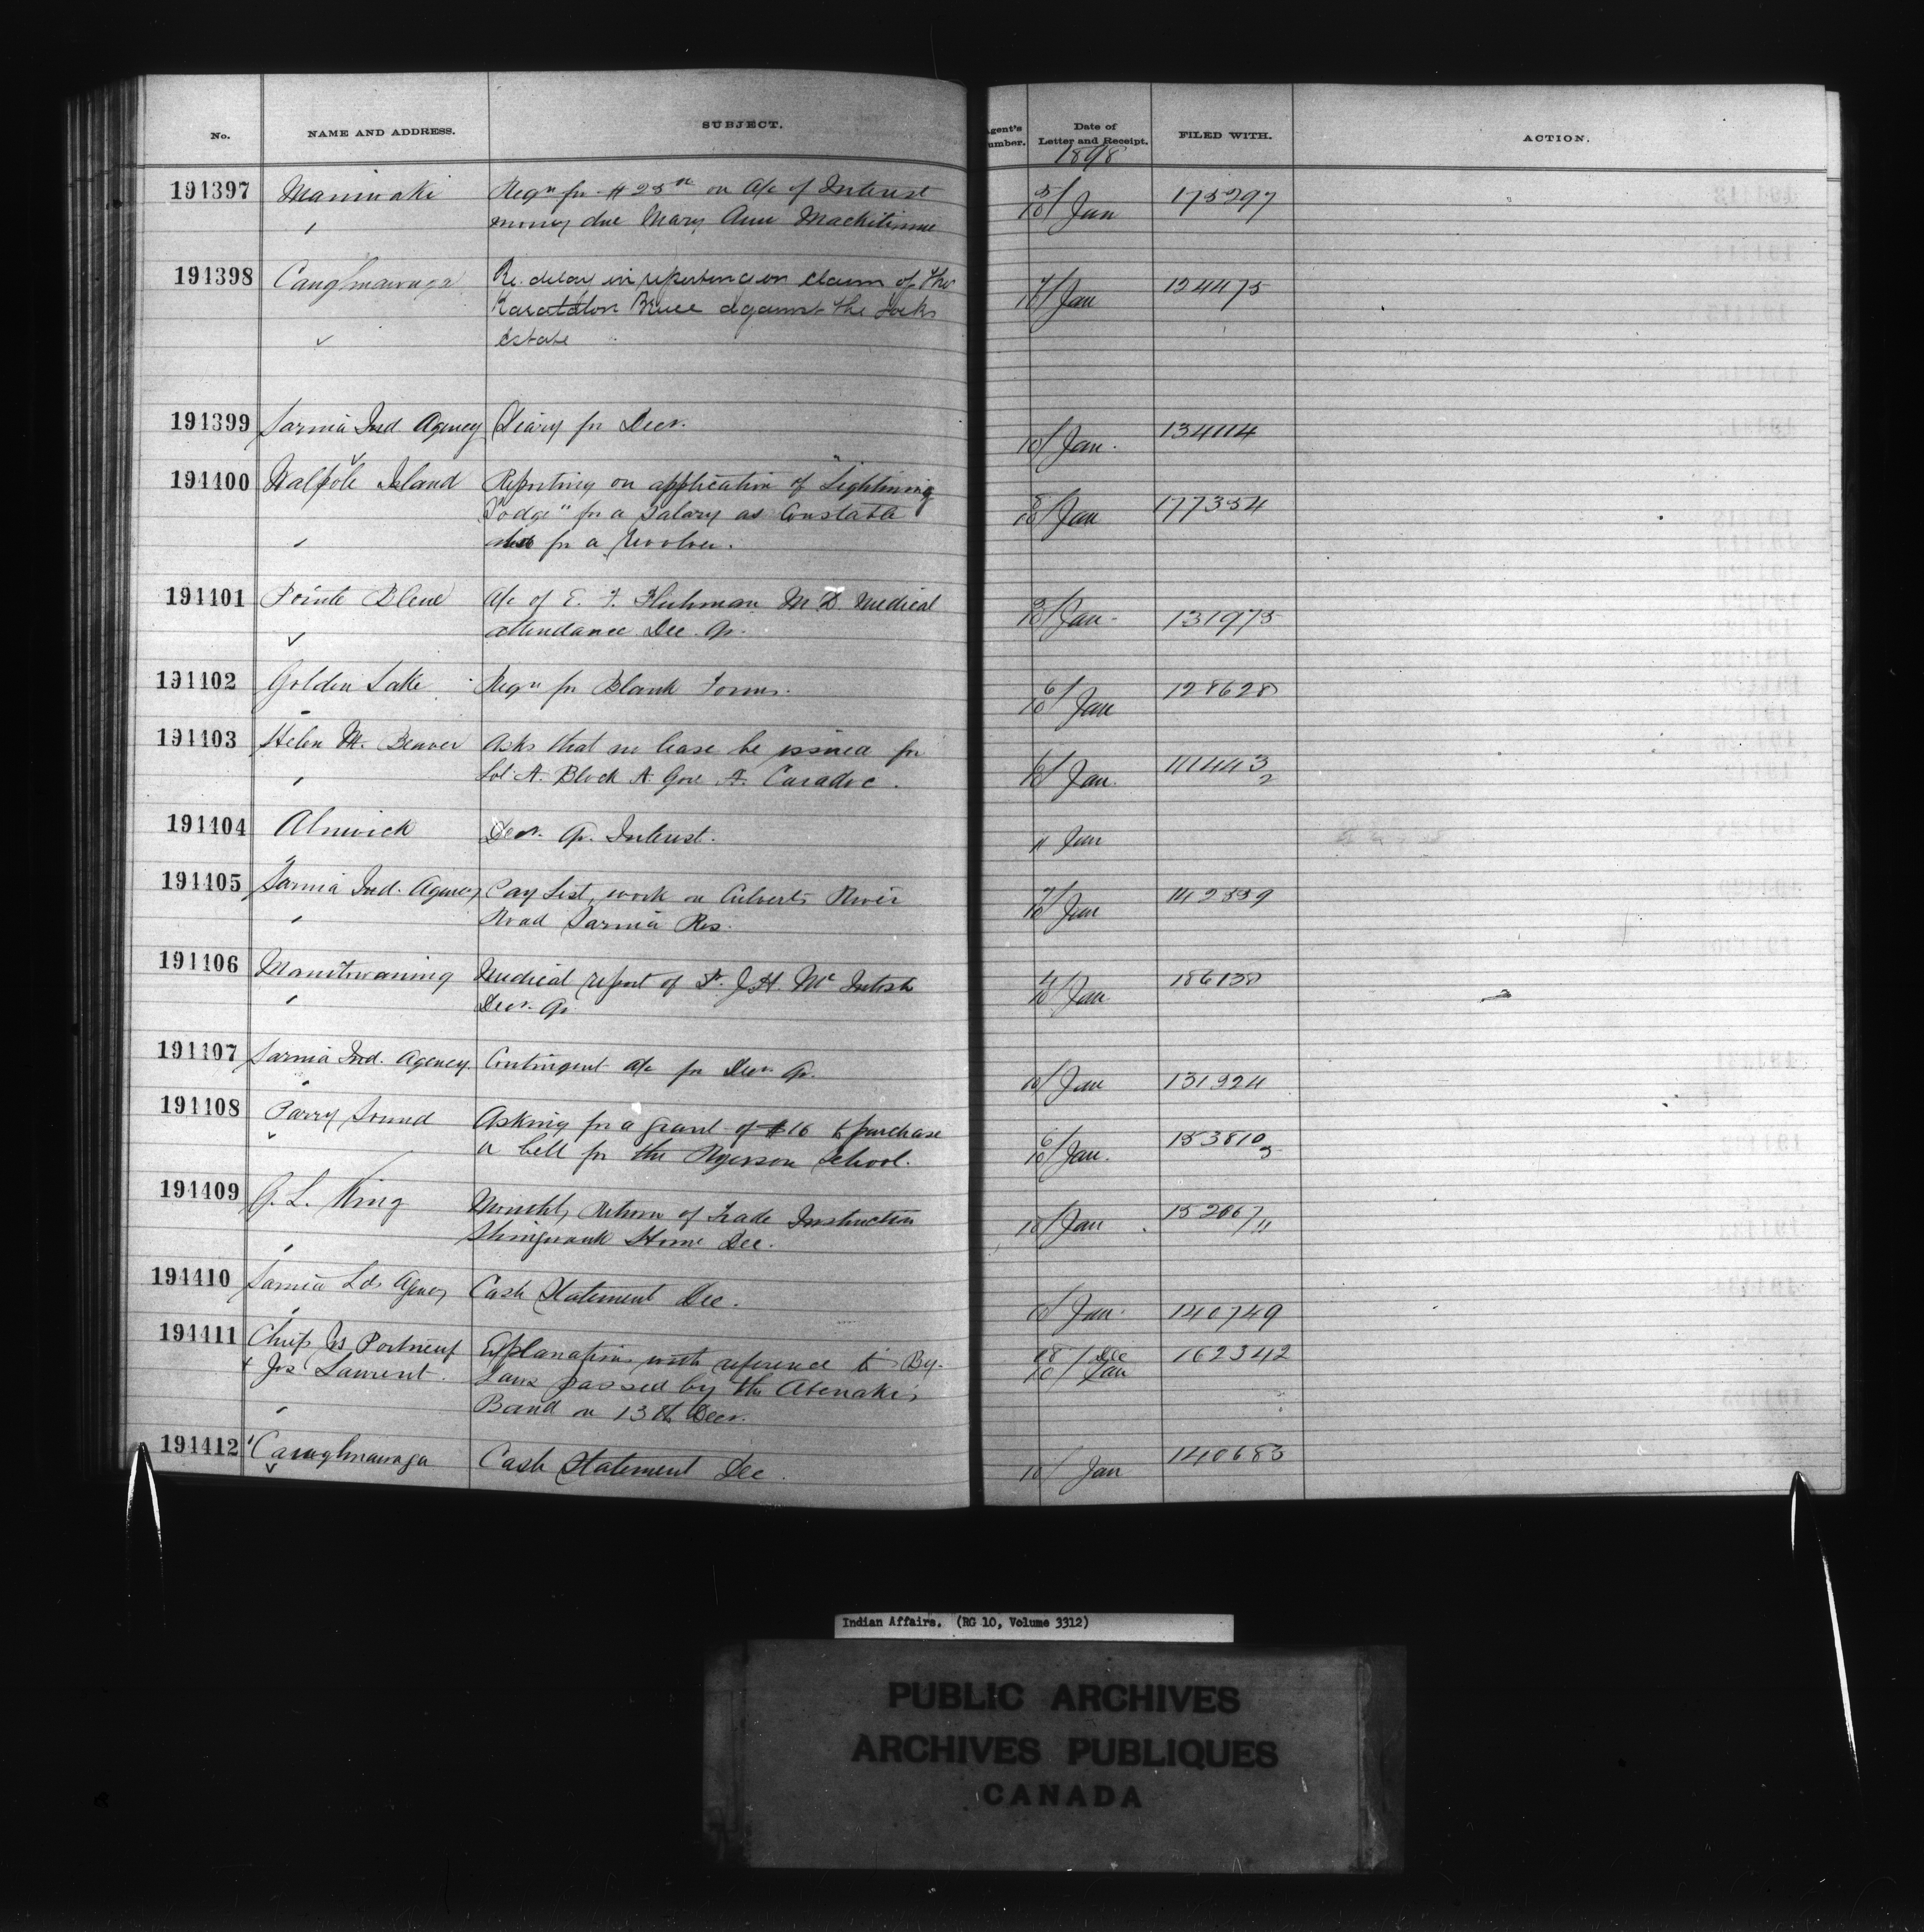 No. NAME AND ADDRESS. SUBJECT. Agent's Number. Date of Letter and Receipt. FILED WITH. ACTION.
1898
191397 Maniwaki Reqn for $25 on a/c of Interest 5/10 Jan 175297
" money due Mary Ann
191398 Caughnawaga Re. delay in reporting on claim of the 7/10 Jan 124475
against the Jocks
estate
191399 Sarnia Ind. Agency Diary for Decr. 10/ Jan. 134114
191400 Walpole Island Reporting on application of "Lightning 8/10 Jan 177354
Dodge" for a salary as Constable
" also for a Revolver.
191401 Pointe Bleue a/c of E. F. M.D. Medical 5/10 Jan. 131975
attendance Dec. Qr.
191402 Golden Lake Reqn for Blank Forms. 6/10 Jan 128628
191403 Helen M. Beaver Asks that no lease be issued for 6/10 Jan. 41443/2
" Lot A. Block A. Gore A. Caradoc.
191404 Alnwick Decr. Qr. Interest. 11 Jan
191405 Sarnia Ind. Agency Pay List, work on Culverts River 7/10 Jan
" Road Sarnia Res.
191406 Manitowaning Medical report of Dr. J.H. McIntosh 4/10 Jan 186138
" Decr. Qr.
191407 Sarnia Ind. Agency. Contingent a/c for Decr. Qr. 10/ Jan 131924
191408 Parry Sound Asking for a grant of $16 to purchase 6/10 Jan. 153810/3
a bell for the Ryerson School.
191409 G. L. King Monthly Return of Trade Instruction 10/ Jan 152067/11
" Shingwauk Home Dec.
191410 Sarnia Lds Agency Cash Statement Dec. 10/ Jan. 140749
191411 Chiefs Portneuf Explanations with reference to By- 28/ Dec 162342
& Jos Laurent. Laws passed by the Abenakis 10/ Jan
" Band on 13th Decr.
191412 Caughnawaga Cash Statement Dec. 10/ Jan 140683
Indian Affairs. (RG 10, Volume 3312)
PUBLIC ARCHIVES
ARCHIVES PUBLIQUES
CANADA